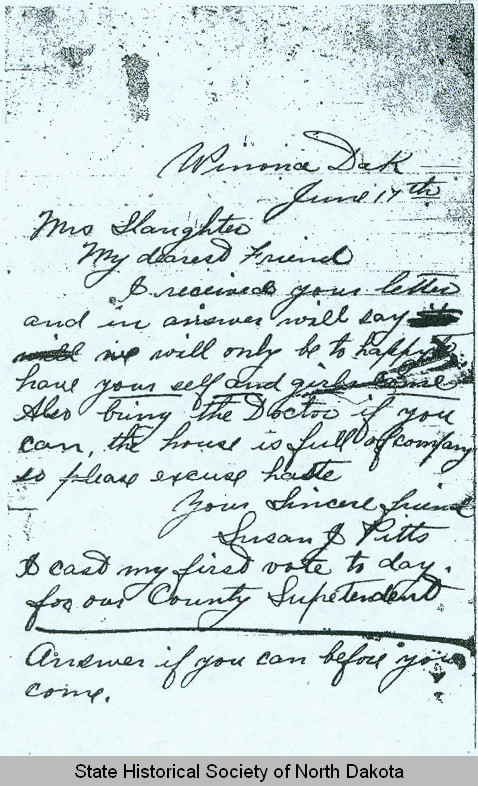 Winona Dak
June 17th
Mrs Slaughter
My dearest Friend
I received your letter
and in answer will say
we will only be to happy to
have your self and girls come
Also bring the Doctor if you
can, the house is full of company
so please excuse haste
Your Sincere friend
Susan J Pitts
I cast my first vote to day.
for our County Supetendent
Answer if you can before you
come.
State Historical Society of North Dakota